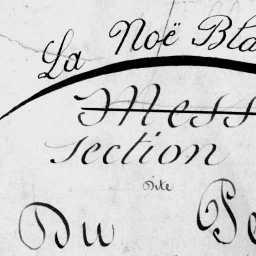 La Noë Bla
Mess
section
Dite
Du Pe